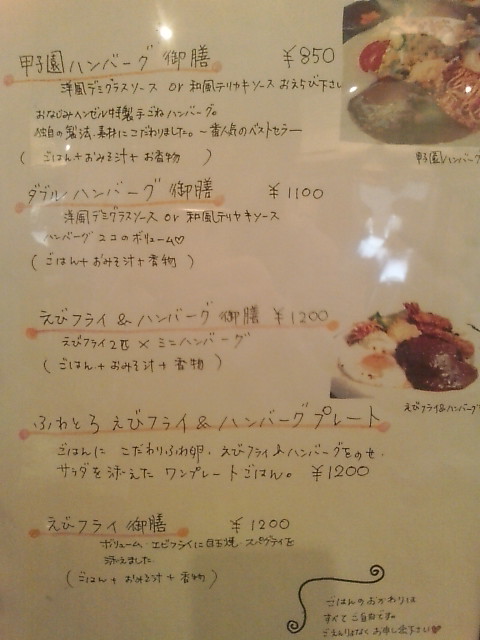 甲子園ハンバーグ御膳 ¥850
洋風デミグラスソース or 和風テリヤキソース おえらび下さい
おなじみヘンゼル特製手ごねハンバーグ。
独自の製法、素材にこだわりました。〜一番人気のベストセラー
(ごはん+おみそ汁+お香物)
甲子園ハンバーグ
ダブルハンバーグ御膳 ¥1100
洋風デミグラスソース or 和風テリヤキソース
ハンバーグ2コのボリューム♡
(ごはん+おみそ汁+香物)
えびフライ&ハンバーグ御膳 ¥1200
えびフライ2匹 × ミニハンバーグ
(ごはん+おみそ汁+香物)
えびフライ&ハンバーグ
ふわとろ えびフライ&ハンバーグプレート
ごはんに こだわりふわ卵、えびフライ&ハンバーグをのせ、
サラダを添えた ワンプレートごはん。 ¥1200
えびフライ御膳 ¥1200
ボリューム エビフライに目玉焼、スパゲティを
添えました
(ごはん+おみそ汁+香物)
ごはんのおかわりは
すべてご自由です。
ごえんりょなくお申し出下さい♥